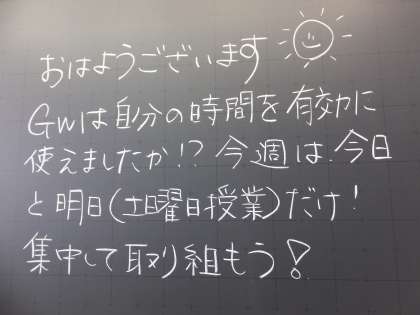 おはようございます
GWは自分の時間を有効に
使えましたか!? 今週は、今日
と明日(土曜日授業)だけ!
集中して取り組もう!